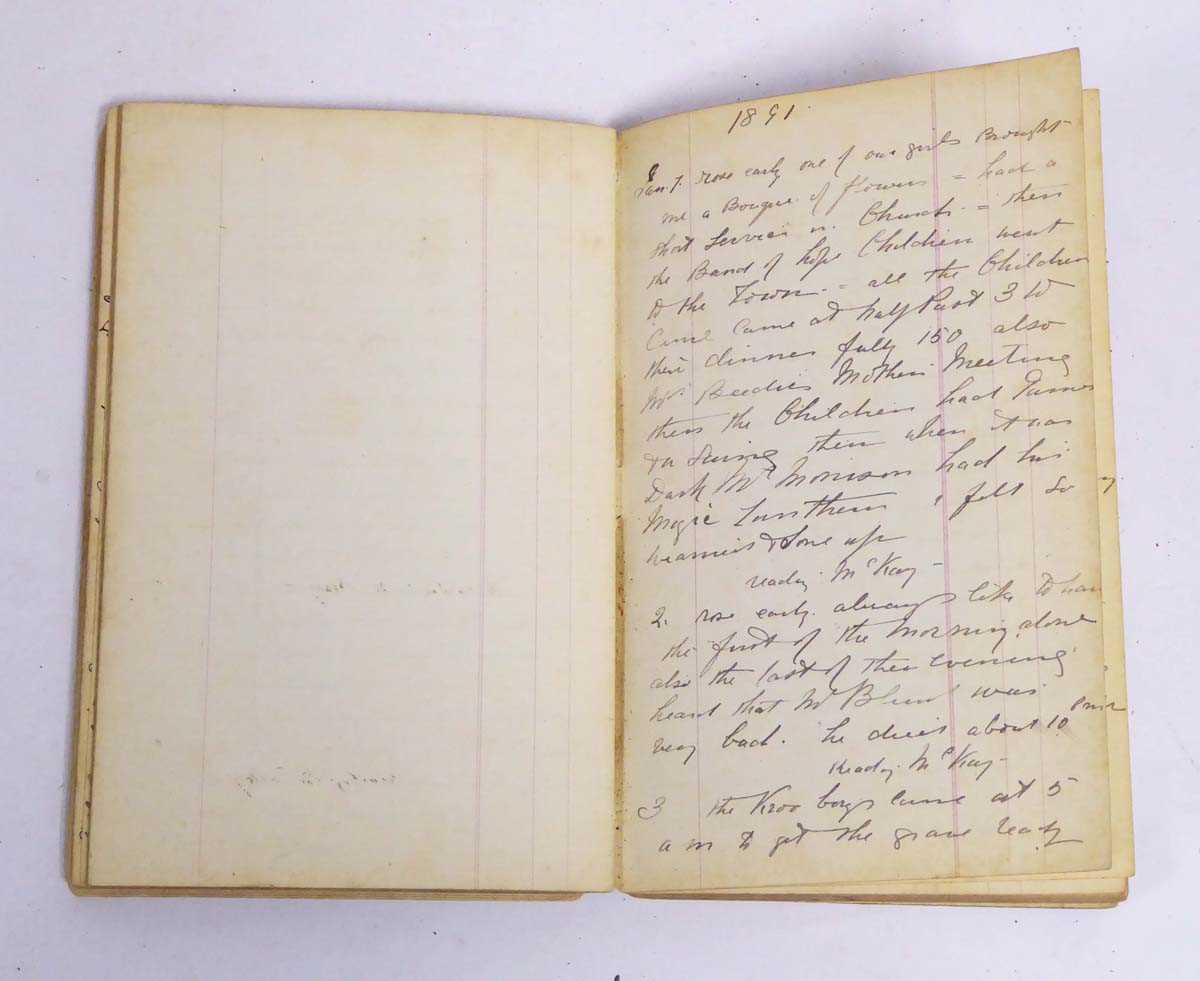 1891
Jan. 1. rose early one of our girls Brought
me a Bouque of flowers = had a
short Service in Church = then
the Band of hope Children went
to the Town = all the Children
Came came at half Past 3 to
their dinner fully 150 also
Mrs Beedies Mothers Meeting
then the Children had Games
& a Swing then when it was
Dark Mr Morrison had his
Magic Lanthern I felt so
wearied & done up
reading McKay -
2. rose early. always like to have
the first of the morning alone
also the last of the evening
heard that Mr was
very bad. he died about 10
Reading McKay -
3 the Kroo boys came at 5
a m to get the grave ready